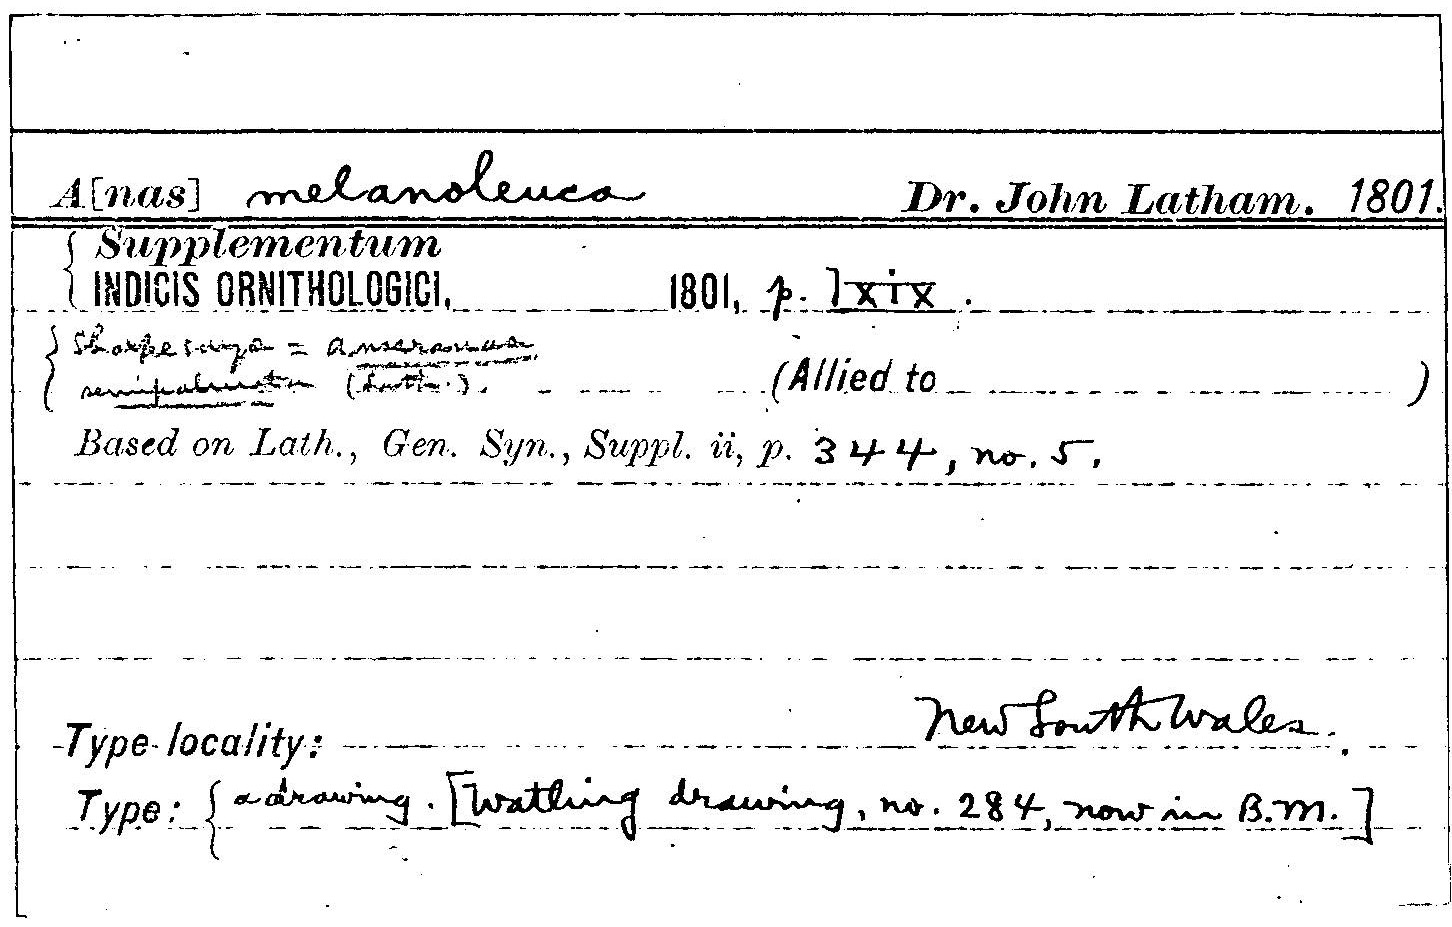 A[nas] melanoleuca Dr. John Latham. 1801.
Supplementum
INDICIS ORNITHOLOGICI, 1801, p. lxix.
Sharpe says = Anseranas
semipalmata (Lath.). (Allied to )
Based on Lath., Gen. Syn., Suppl. ii, p. 344, no. 5.
New South Wales.
Type locality:
Type: a drawing. [Watling drawing, no. 284, now in B.M.]